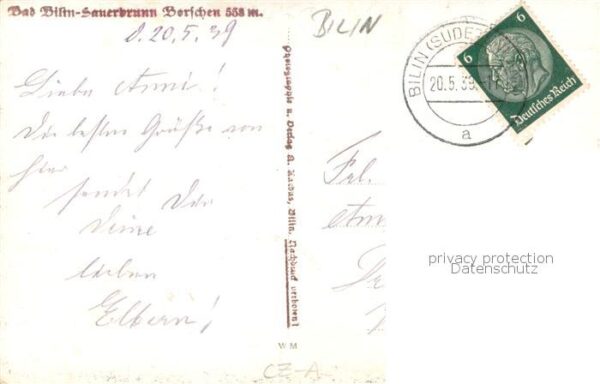 Bad Bilin-Sauerbrunn Borschen 538 m.
d. 20.5.39
Liebe Anni!
Die besten Grüße von
hier
sendet Dir
Deine
lieben
Eltern!
Photographie u. Verlag A. Bilin. Nachdruck verboten!
W M
BILIN
BILIN (SUDE
20.5.39
a
6
6
Deutsches Reich
Frl.
privacy protection
Datenschutz
CZ-A